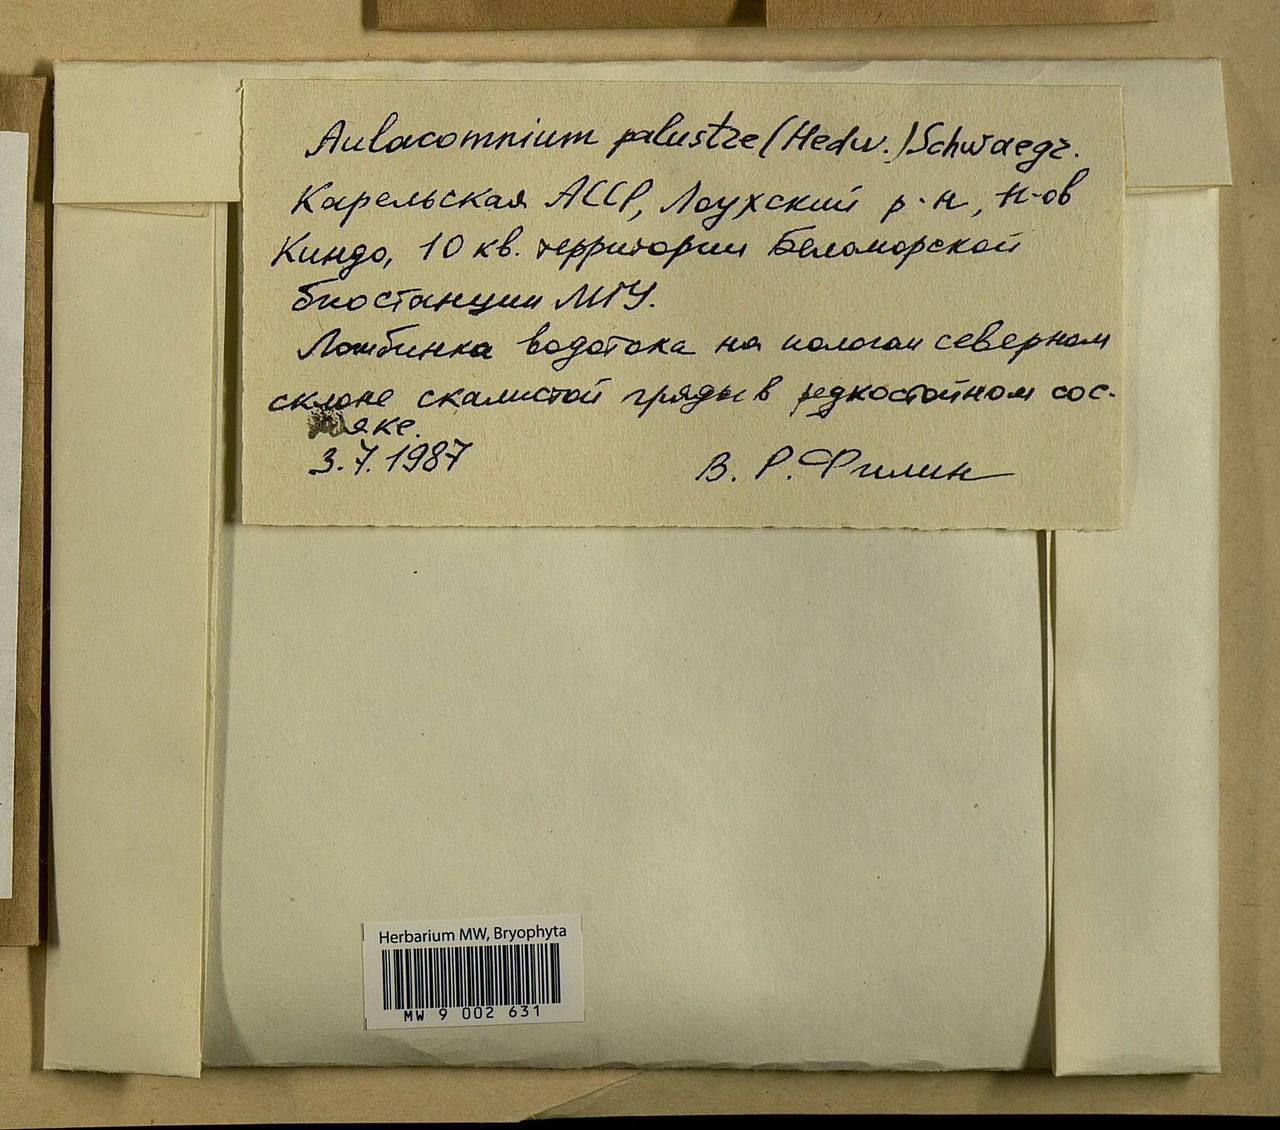 Aulacomnium palustre (Hedw.) Schwaegr.
Карельская АССР, Лоухский р-н, п-ов
Киндо, 10 кв. территории Беломорской
биостанции МГУ.
Ложбинка водотока на пологом северном
склоне скалистой гряды в редкостойном сос-
няке.
3.7.1987
В. Р. Филин
Herbarium MW, Bryophyta
MW 9 002 631